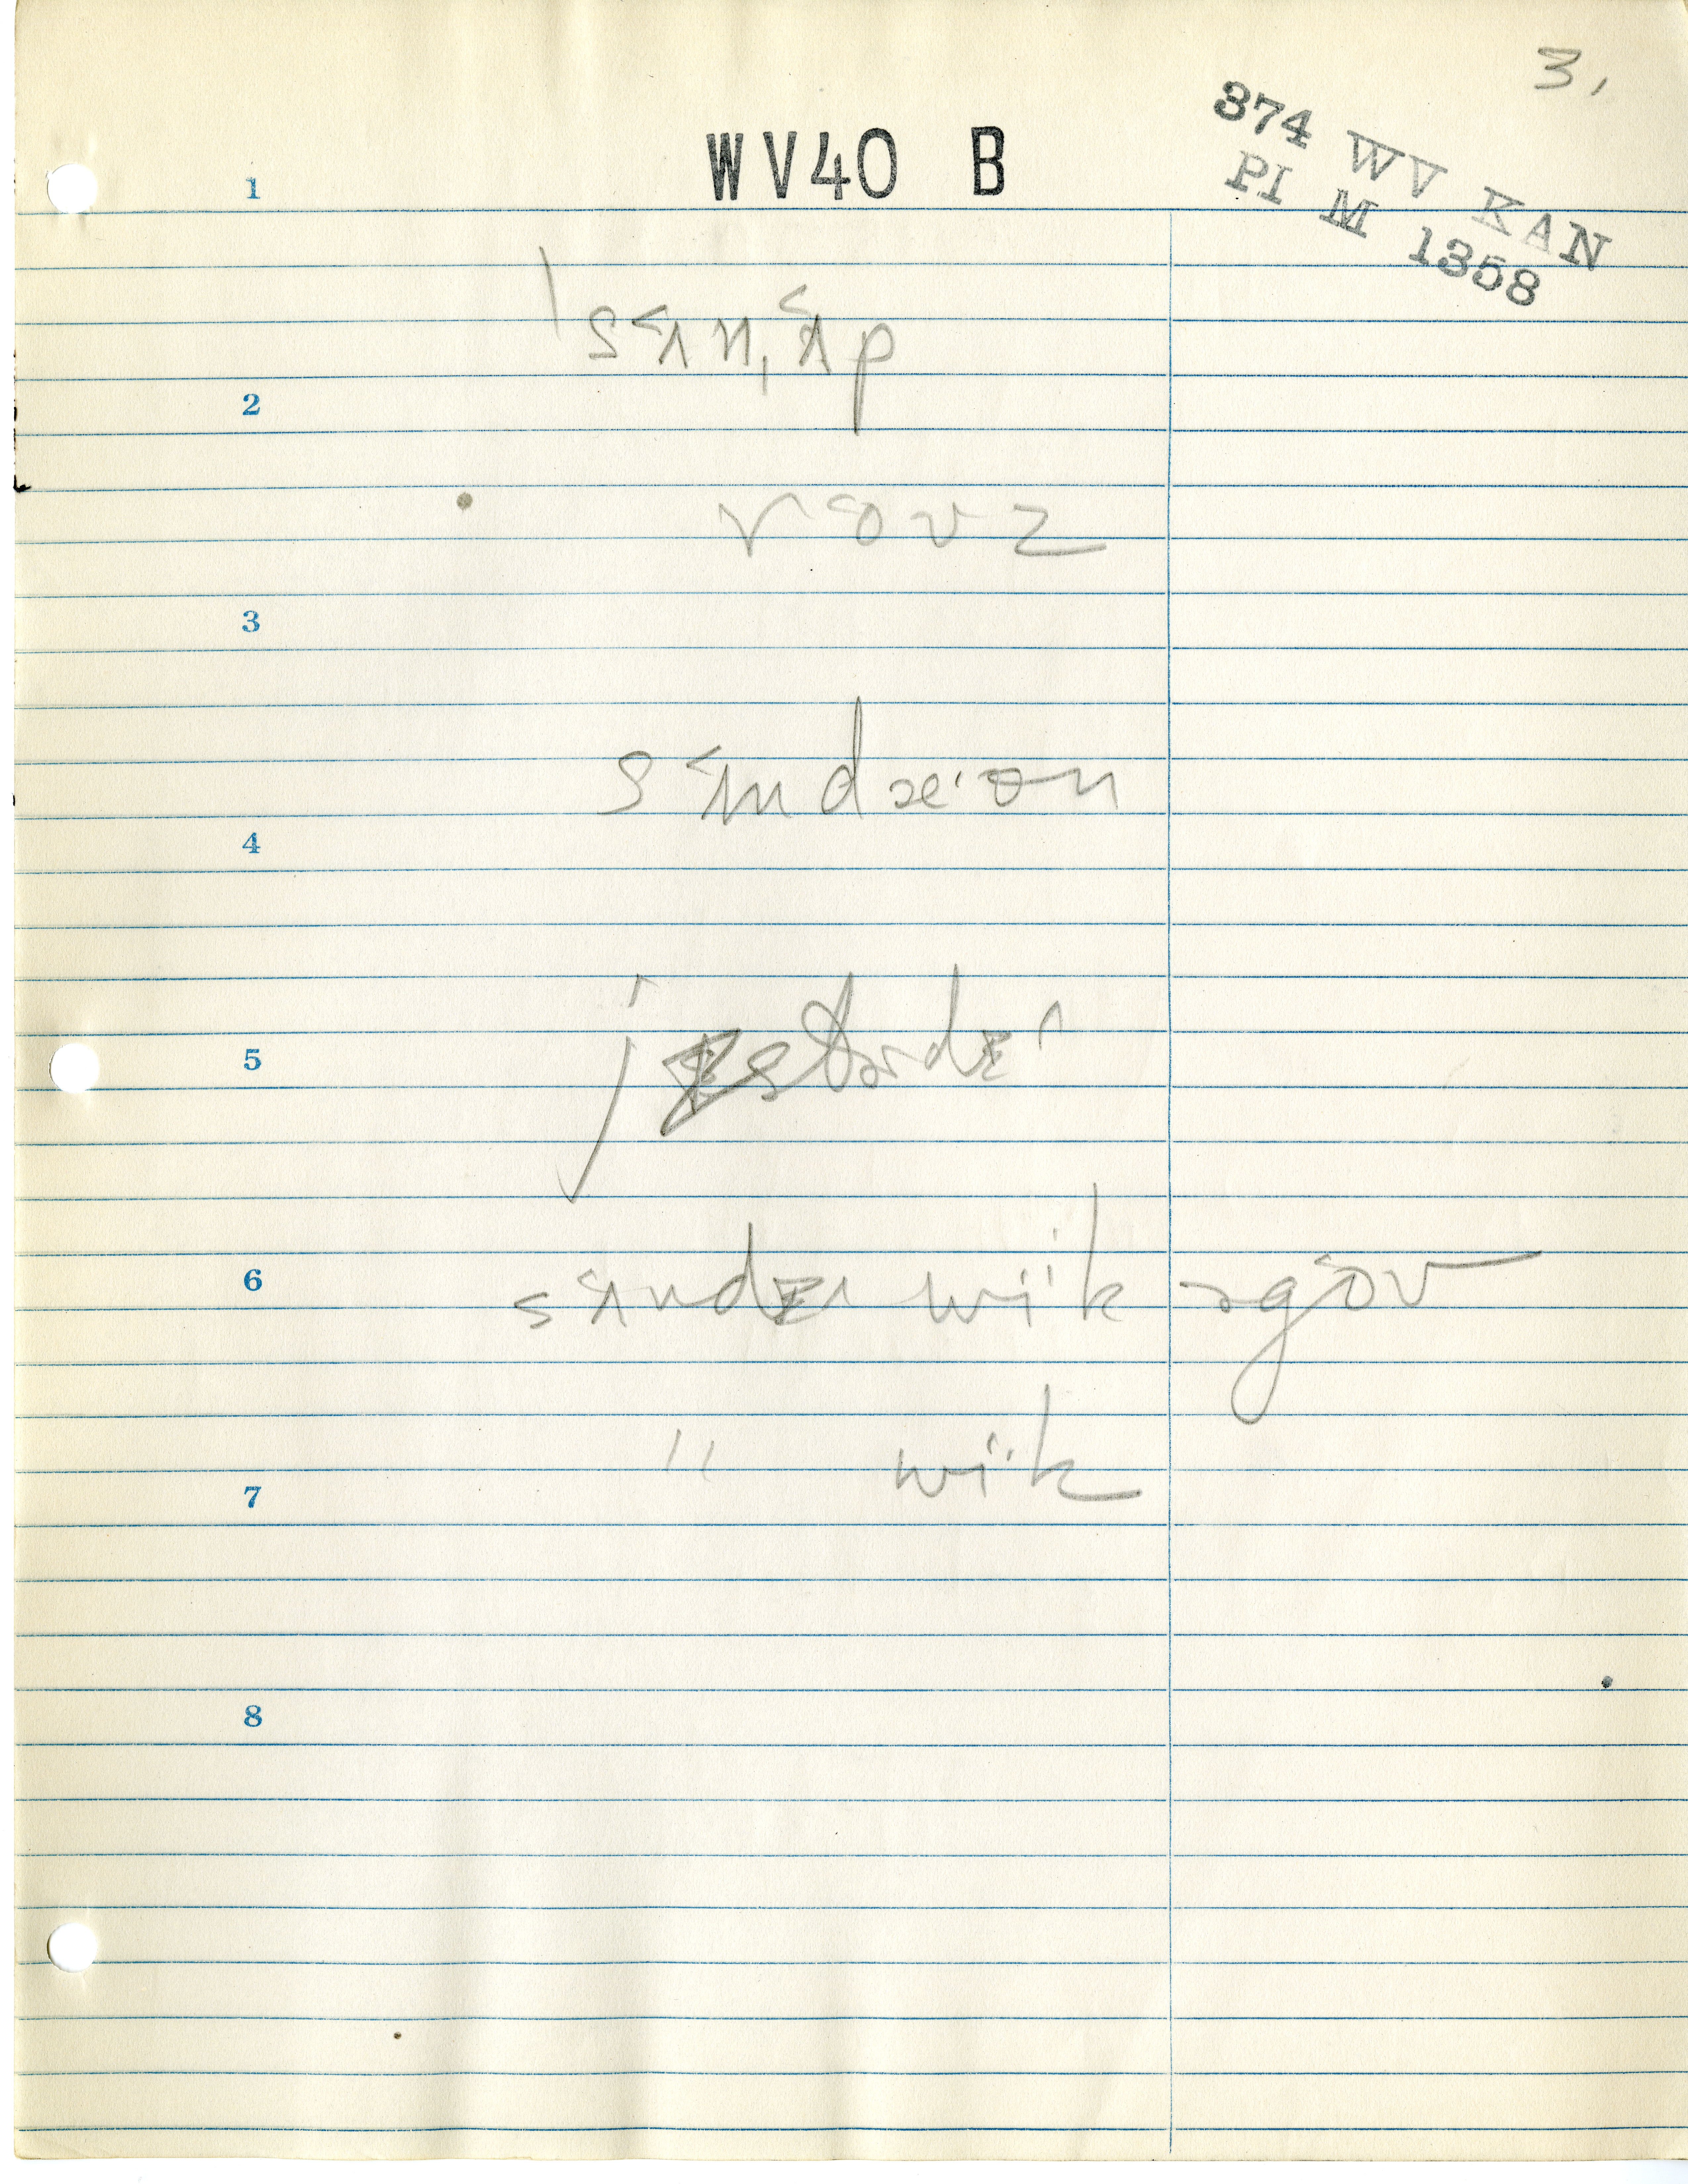 3,
WV40 B
374 WV KAN
PI M 1358
1
ˈsʌnˌʌp
2
rouz
3
sʌndæ·ən
4
jɛstərdɛɪ
5
6
sʌndɛɪ wi·k əgou
" wi·k
7
8